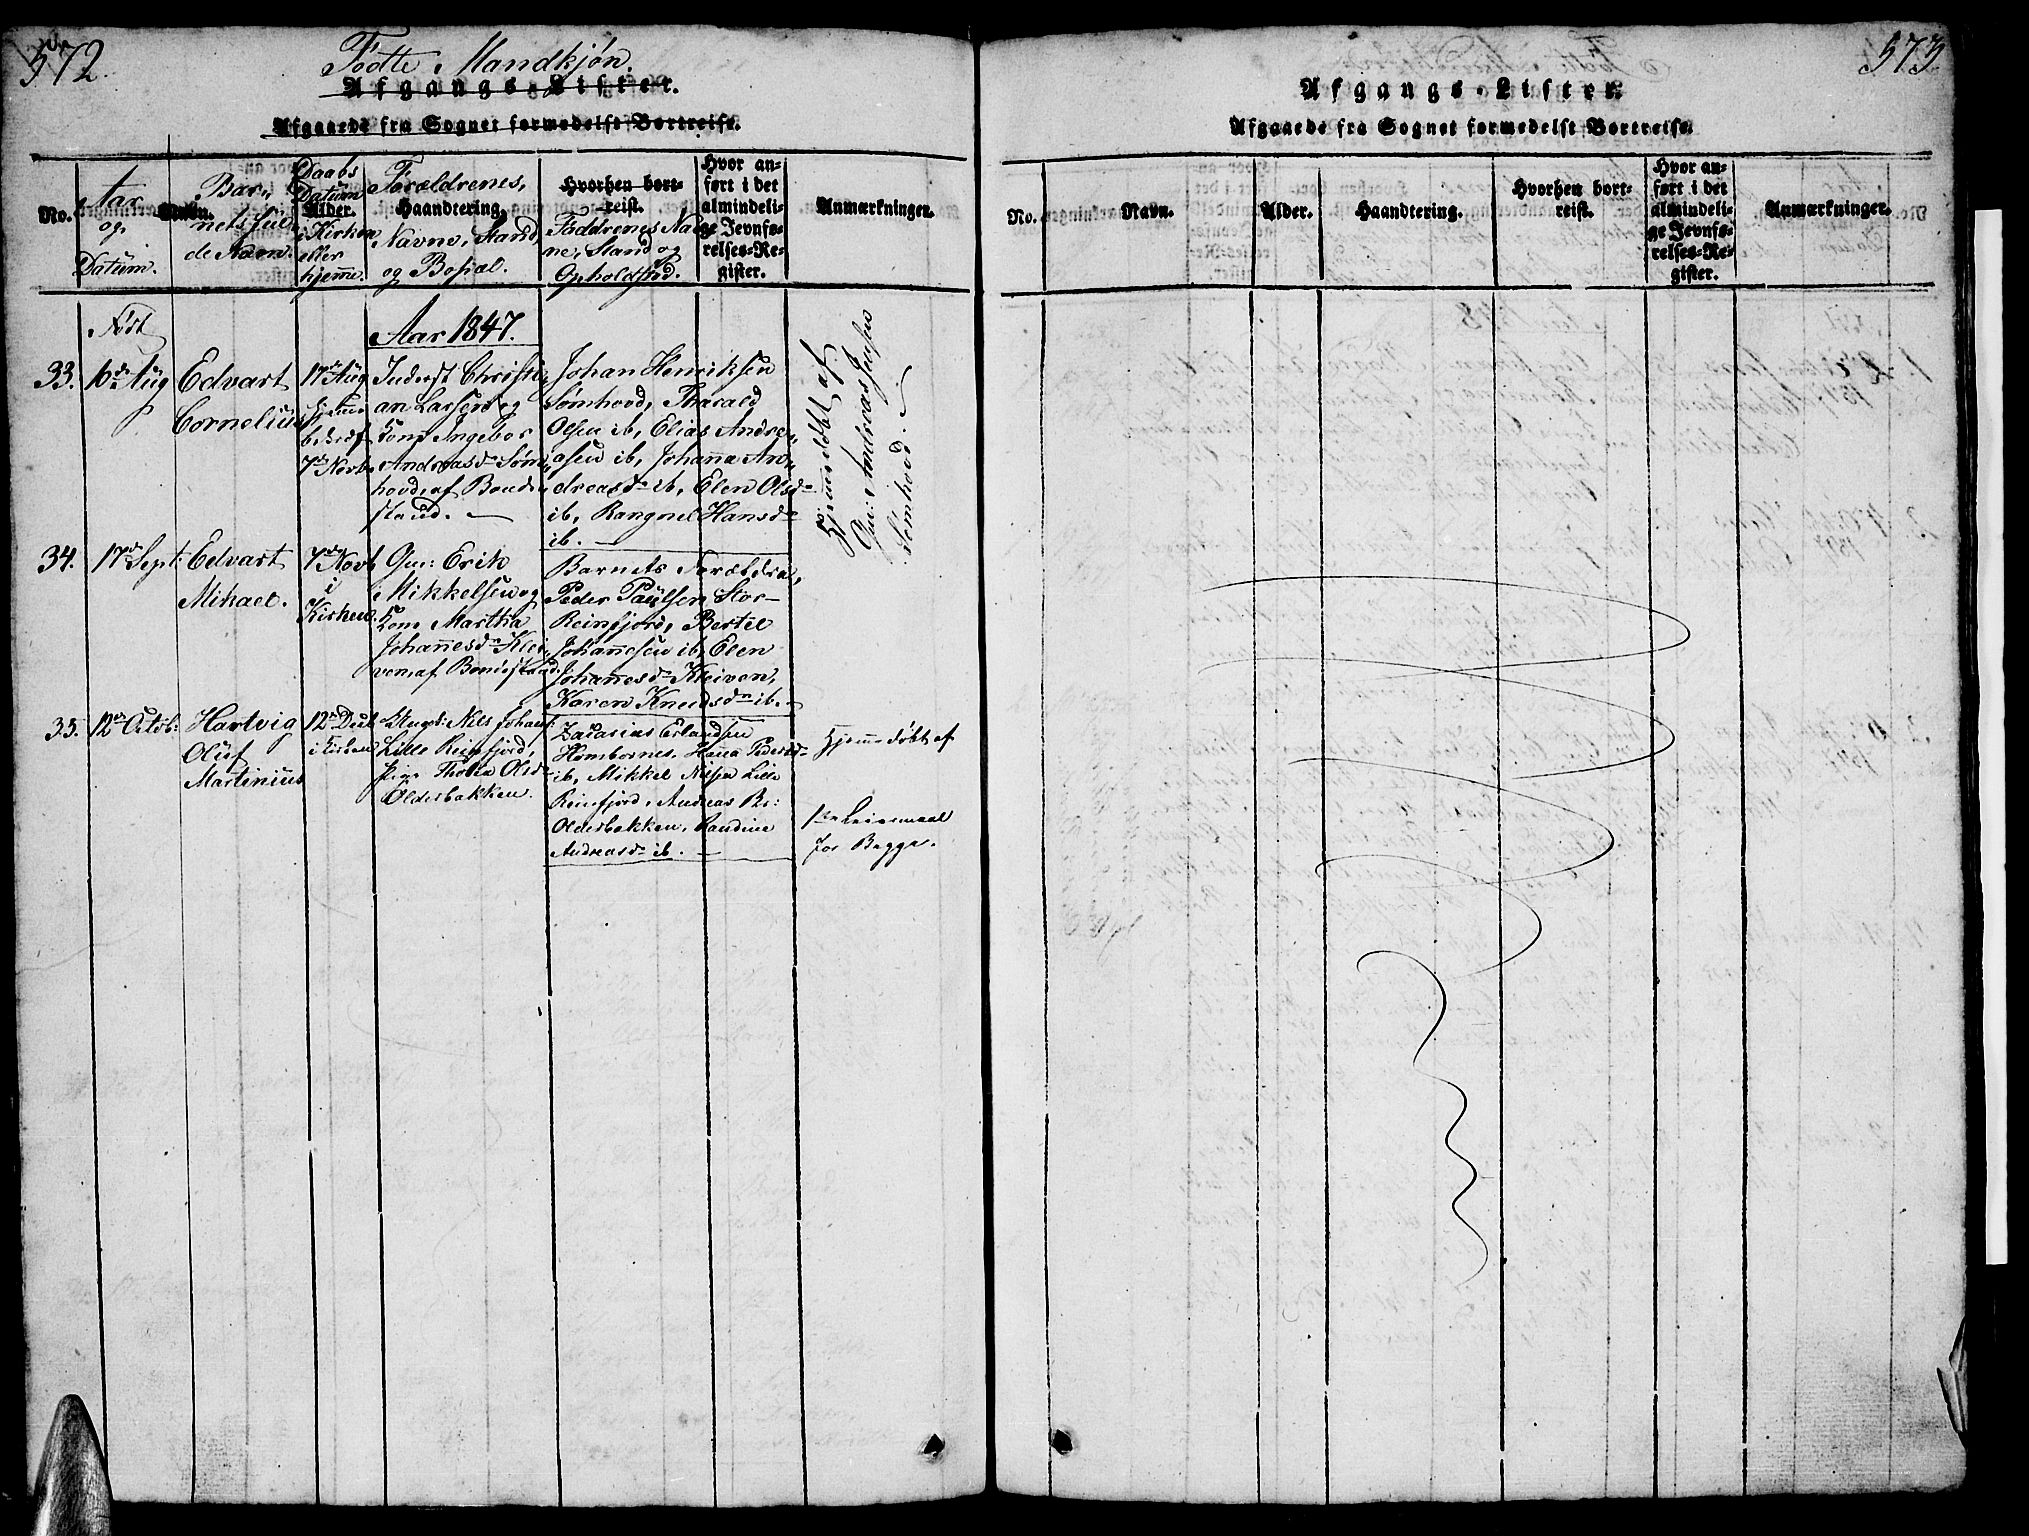 572.
Födte, Mandkjøn.
Afgangs-Lister.
Afgaaede fra Sognet formedelst Bortreise.
No.
Aar
og
Datum.
Navn.
Bar-
nets ful
de Navn.
Daabs
Datum
Alder.
i Kirken
eller
hjemme.
Forældrenes,
Haandtering.
Navne, Stand,
og Bopæl.
Hvorhen bort-
reist.
Faddrenes Nav
ne, Stand og
Opholdsted.
Hvor an-
ført i det
almindeli-
ge Jevnfø-
relses-Re-
gister.
Anmærkninger.
Aar 1847.
33.
16de Aug
Edvart
Cornelius
17de Aug
hjemme
7de Novb
Inderst Christi-
an Larsen og
Kone Ingebor
Andreasdr Søm-
hovd, af Bonde-
stand.
Johan Henriksen
Sømhovd, Tharald
Olsen ib, Elias Andre-
asen ib, Johanna An-
dreasdr ib, Elen Olsdr
ib, Rangnel Hansdr
ib.
Hjemmedøbt af
Gm: Andreas Jensen
Sømhovd.
34.
17de Sept:
Edvart
Mikael.
7de Novb
i
Kirken.
Gm: Erik
Mikkelsen og
Kone Martha
Johannesdr Klei-
ven, af Bondestand.
Barnets Forældre,
Peder Paulsen Stor-
Reinfjord, Bertel
Johannesen ib, Elen
Johannesdr Kleiven,
Karen Knudsdr ib.
35.
12te Octob:
Hartvig
Oluf
Martinius
12te Decb
i Kirken
Ungk: Nils Johans:
Lille Reinfjord,
Pige Tholea Olsdr
Olderbakken.
Zacarias Erlandsen
Hombornes, Hanna Pedersdr
ib, Mikkel Nilsen Lille
Reinfjord, Andreas Br:
Olderbakken, Randine
Andreasdr ib.
Hjemmedøbt af
1ste Leiermaal
for Begge.
573.
Afgangs-Lister.
Afgaaede fra Sognet formedelst Bortreise.
No.
Navn.
Alder.
Haandtering.
Hvorhen bort-
reist.
Hvor an-
ført i det
almindeli-
ge Jevnfø-
relses-Re-
gister.
Anmærkninger.